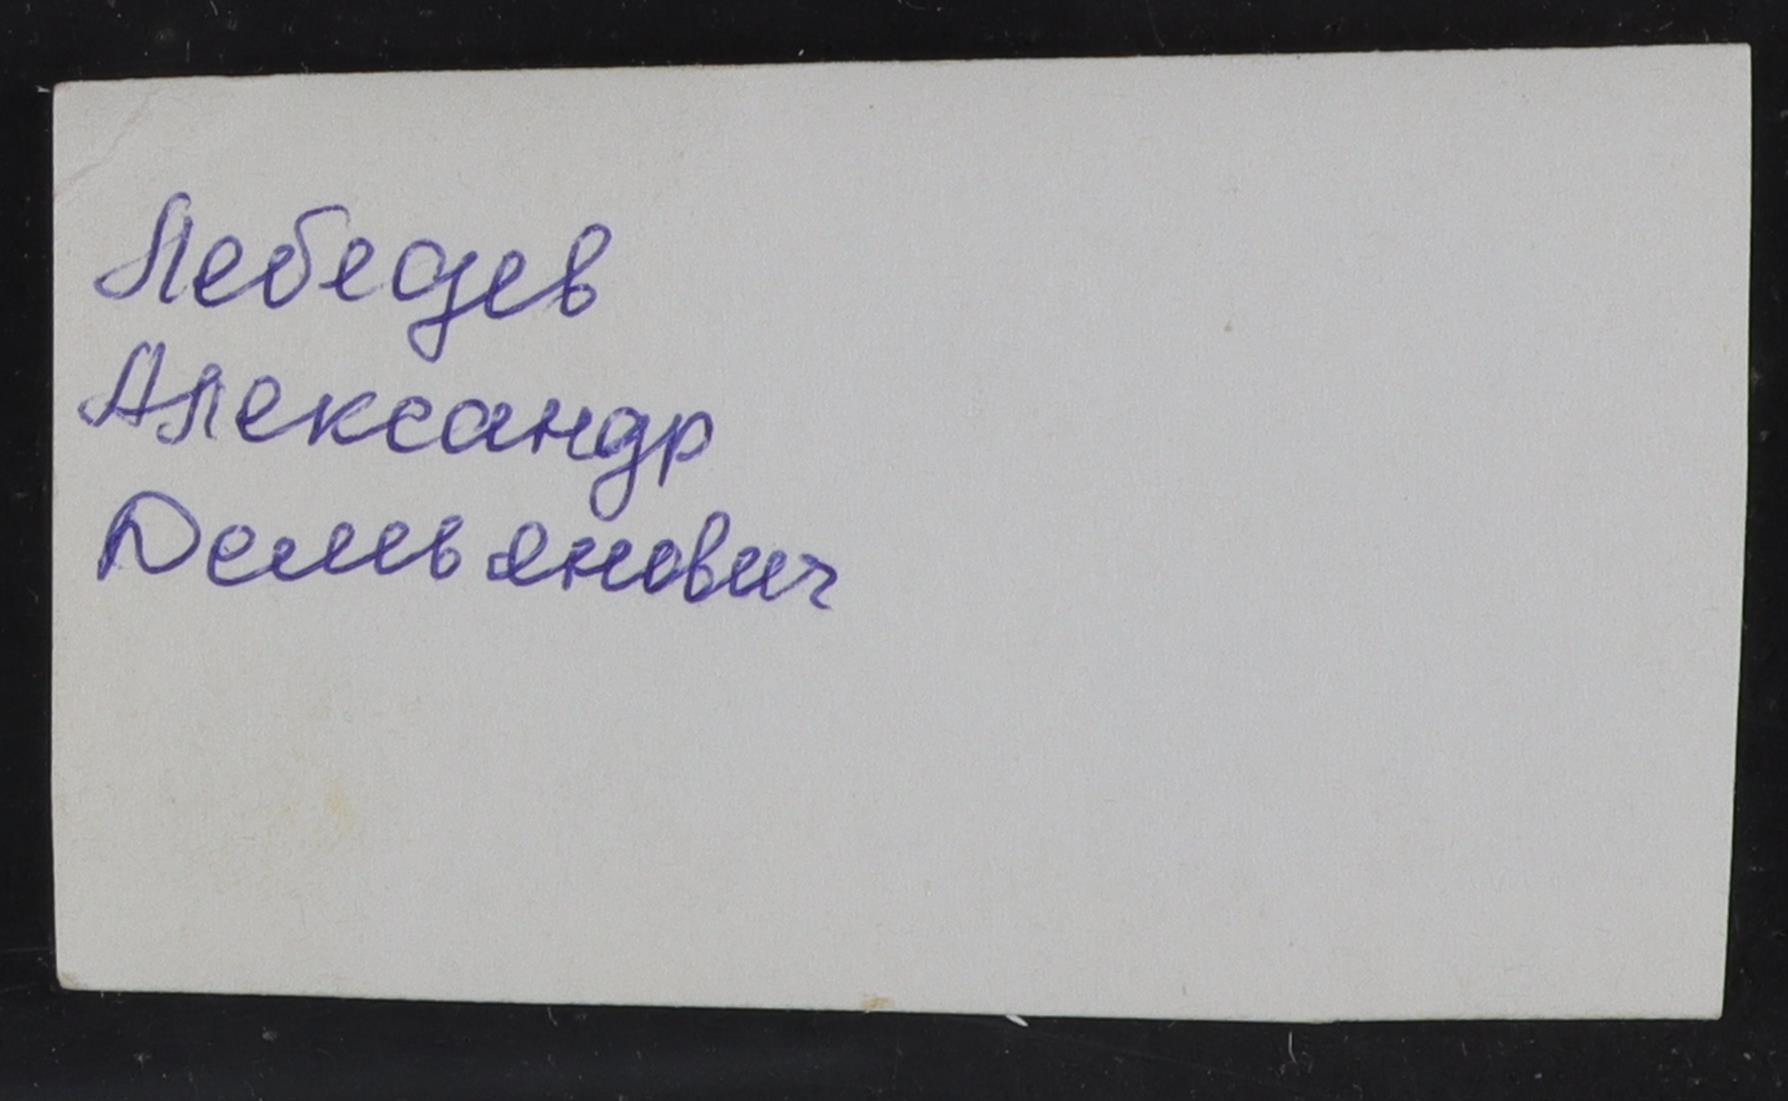 Лебедев
Александр
Демьянович